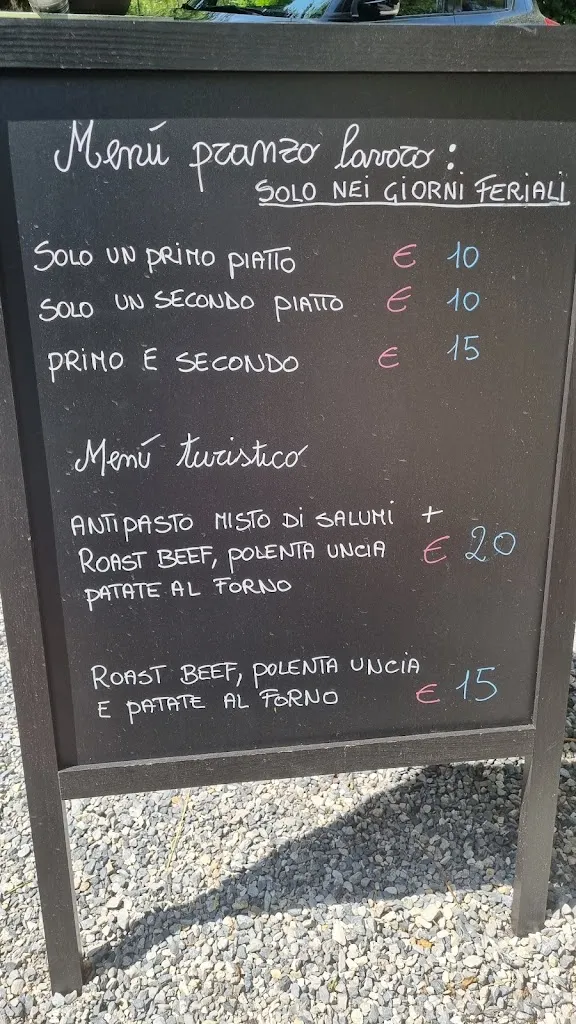 Menú pranzo lavoro:
SOLO NEI GIORNI FERIALI
SOLO UN PRIMO PIATTO € 10
SOLO UN SECONDO PIATTO € 10
PRIMO E SECONDO € 15
Menú turistico
ANTIPASTO MISTO DI SALUMI +
ROAST BEEF, POLENTA UNCIA € 20
PATATE AL FORNO
ROAST BEEF, POLENTA UNCIA
E PATATE AL FORNO € 15